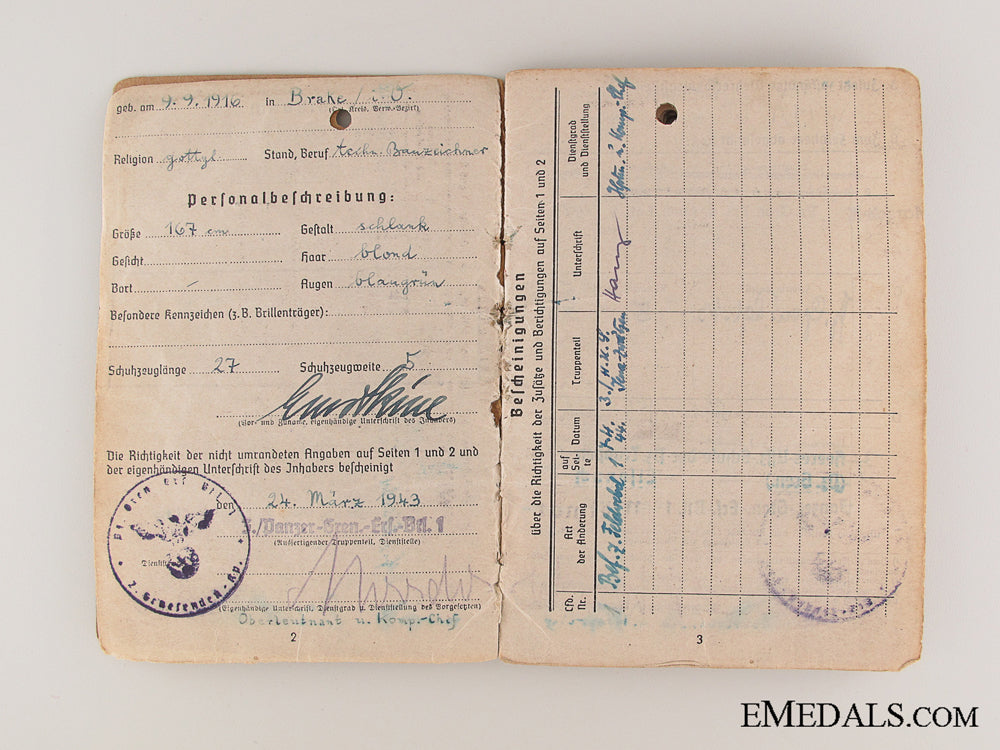 geb. am 9.9.1916 in Brake / i.O.
(Ort, Kreis, Verw.-Bezirk)
Religion gottgl. Stand, Beruf techn. Bauzeichner
Personalbeschreibung:
Größe 167 cm Gestalt schlank
Gesicht Haar blond
Bart – Augen blaugrün
Besondere Kennzeichen (z.B. Brillenträger):
Schuhzeuglänge 27 Schuhzeugweite 5
(Vor- und Zuname, eigenhändige Unterschrift des Inhabers)
Die Richtigkeit der nicht umrandeten Angaben auf Seiten 1 und 2 und
der eigenhändigen Unterschrift des Inhabers bescheinigt
den 24. März 1943
/Panzer-Gren.-Ers.-Btl. 1
(Ausfertigender Truppenteil, Dienststelle)
2. Genesenden-Kp.
(Eigenhändige Unterschrift, Dienstgrad u. Dienststellung des Vorgesetzten)
Oberleutnant u. Komp.-Chef
2
Bescheinigungen
über die Richtigkeit der Zusätze und Berichtigungen auf Seiten 1 und 2
Lfd. Nr.
Art der Änderung
auf Sei- te
Datum
Truppenteil
Unterschrift
Dienstgrad und Dienststellung
1 Bef. z. Feldwebel 1
44.
u. Komp. Chef
3
EMEDALS.COM